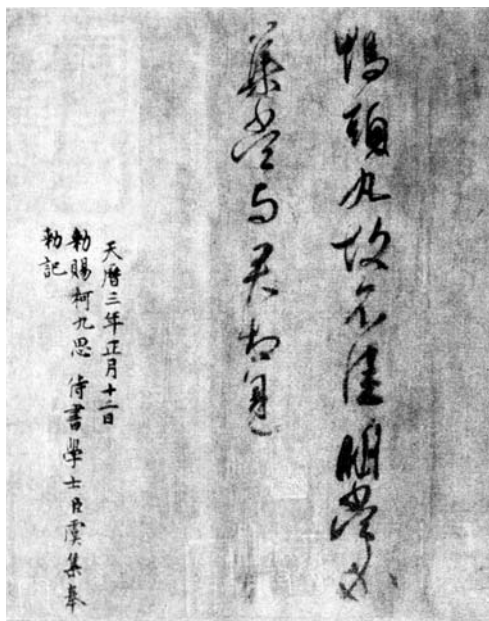 鴨頭丸故不佳明當必
集當与君相見
天曆三年正月十二日
勑賜柯九思侍書學士臣虞集奉
勑記